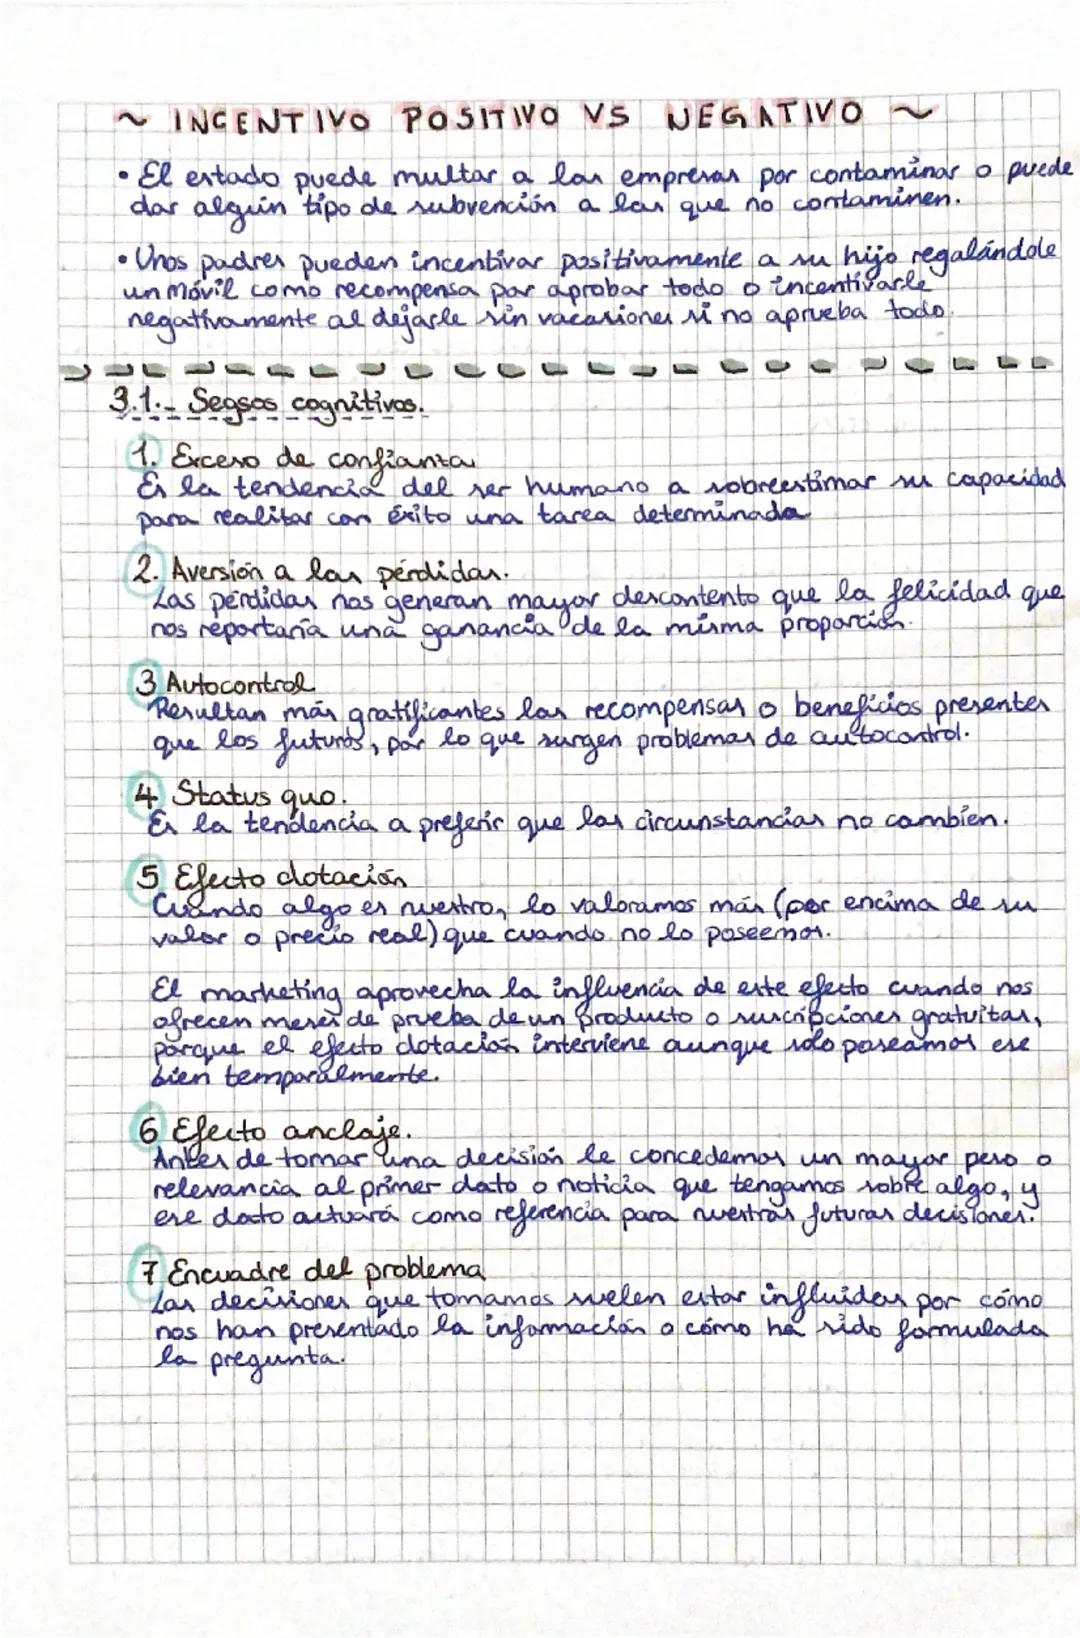 ~ INCENTIVO POSITIVO VS NEGATIVO ~
• El estado puede multar a las empresas por contaminar o puede
dar algún tipo de subvención a las que no contaminen.
• Unos padres pueden incentivar positivamente a su hijo regalándole
un móvil como recompensa por aprobar todo o incentivarle
negativamente al dejarle sin vacaciones si no aprueba todo.
3.1.- Segsos cognitivos.
1. Exceso de confianza
Es la tendencia del ser humano a sobreestimar su capacidad
para realizar con éxito una tarea determinada
2. Aversión a las pérdidas.
Las pérdidas nos generan mayor descontento que la felicidad que
nos reportaría una ganancia de la misma proporción.
3 Autocontrol
Resultan más gratificantes las recompensas o beneficios presentes
que los futuros, por lo que surgen problemas de autocontrol.
4 Status quo.
Es la tendencia a preferir que las circunstancias no cambien.
5 Efecto dotación
Cuando algo es nuestro, lo valoramos más (por encima de su
valor o precio real) que cuando no lo poseemos.
El marketing aprovecha la influencia de este efecto cuando nos
ofrecen meses de prueba de un producto o suscripciones gratuitas,
porque el efecto dotación interviene aunque solo poseamos ese
bien temporalmente.
6 Efecto anclaje.
Antes de tomar una decisión le concedemos un mayor peso o
relevancia al primer dato o noticia que tengamos sobre algo, y
ese dato actuará como referencia para nuestras futuras decisiones.
7 Encuadre del problema
Las decisiones que tomamos suelen estar influidas por cómo
nos han presentado la información o cómo ha sido formulada
la pregunta.